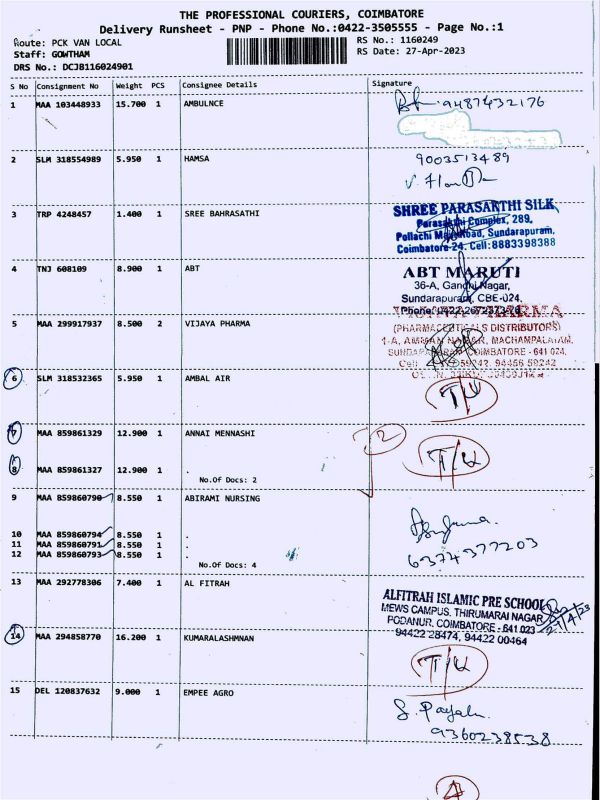 THE PROFESSIONAL COURIERS, COIMBATORE
Delivery Runsheet - PNP - Phone No.:0422-3505555 - Page No.:1
Route: PCK VAN LOCAL
RS No.: 1160249
Staff: GOWTHAM
RS Date: 27-Apr-2023
DRS No.: DCJB116024901
S No Consignment No Weight PCS Consignee Details Signature
1 MAA 103448933 15.700 1 AMBULNCE 9487432176
2 SLM 318554989 5.950 1 HAMSA 9003513489
3 TRP 4248457 1.400 1 SREE BAHRASATHI
SHREE PARASAKTHI SILK
Parasakthi Complex, 289,
Pollachi Main Road, Sundarapuram,
Coimbatore-24. Cell:8883398388
4 TNJ 608109 8.900 1 ABT
ABT MARUTI
36-A, Gandhi Nagar,
Sundarapuram, CBE-024.
5 MAA 299917937 8.500 2 VIJAYA PHARMA
VIJAYA PHARMA
(PHARMACEUTICALS DISTRIBUTORS)
1-A, AMMAN NAGAR, MACHAMPALAYAM,
SUNDARAPURAM COIMBATORE - 641 024.
6 SLM 318532365 5.950 1 AMBAL AIR T/U
7 MAA 859861329 12.900 1 ANNAI MENNASHI 2 T/U
8 MAA 859861327 12.900 1 .
No.Of Docs: 2
9 MAA 859860790 8.550 1 ABIRAMI NURSING
10 MAA 859860794 8.550 1 .
11 MAA 859860791 8.550 1 .
12 MAA 859860793 8.550 1 .
6374377203
No.Of Docs: 4
13 MAA 292778306 7.400 1 AL FITRAH
ALFITRAH ISLAMIC PRE SCHOOL
MEWS CAMPUS, THIRUMARAI NAGAR
PODANUR, COIMBATORE - 641 023
94422 28474, 94422 00464
14 MAA 294858770 16.200 1 KUMARALASHMNAN T/U
15 DEL 120837632 9.000 1 EMPEE AGRO
9360238538
4